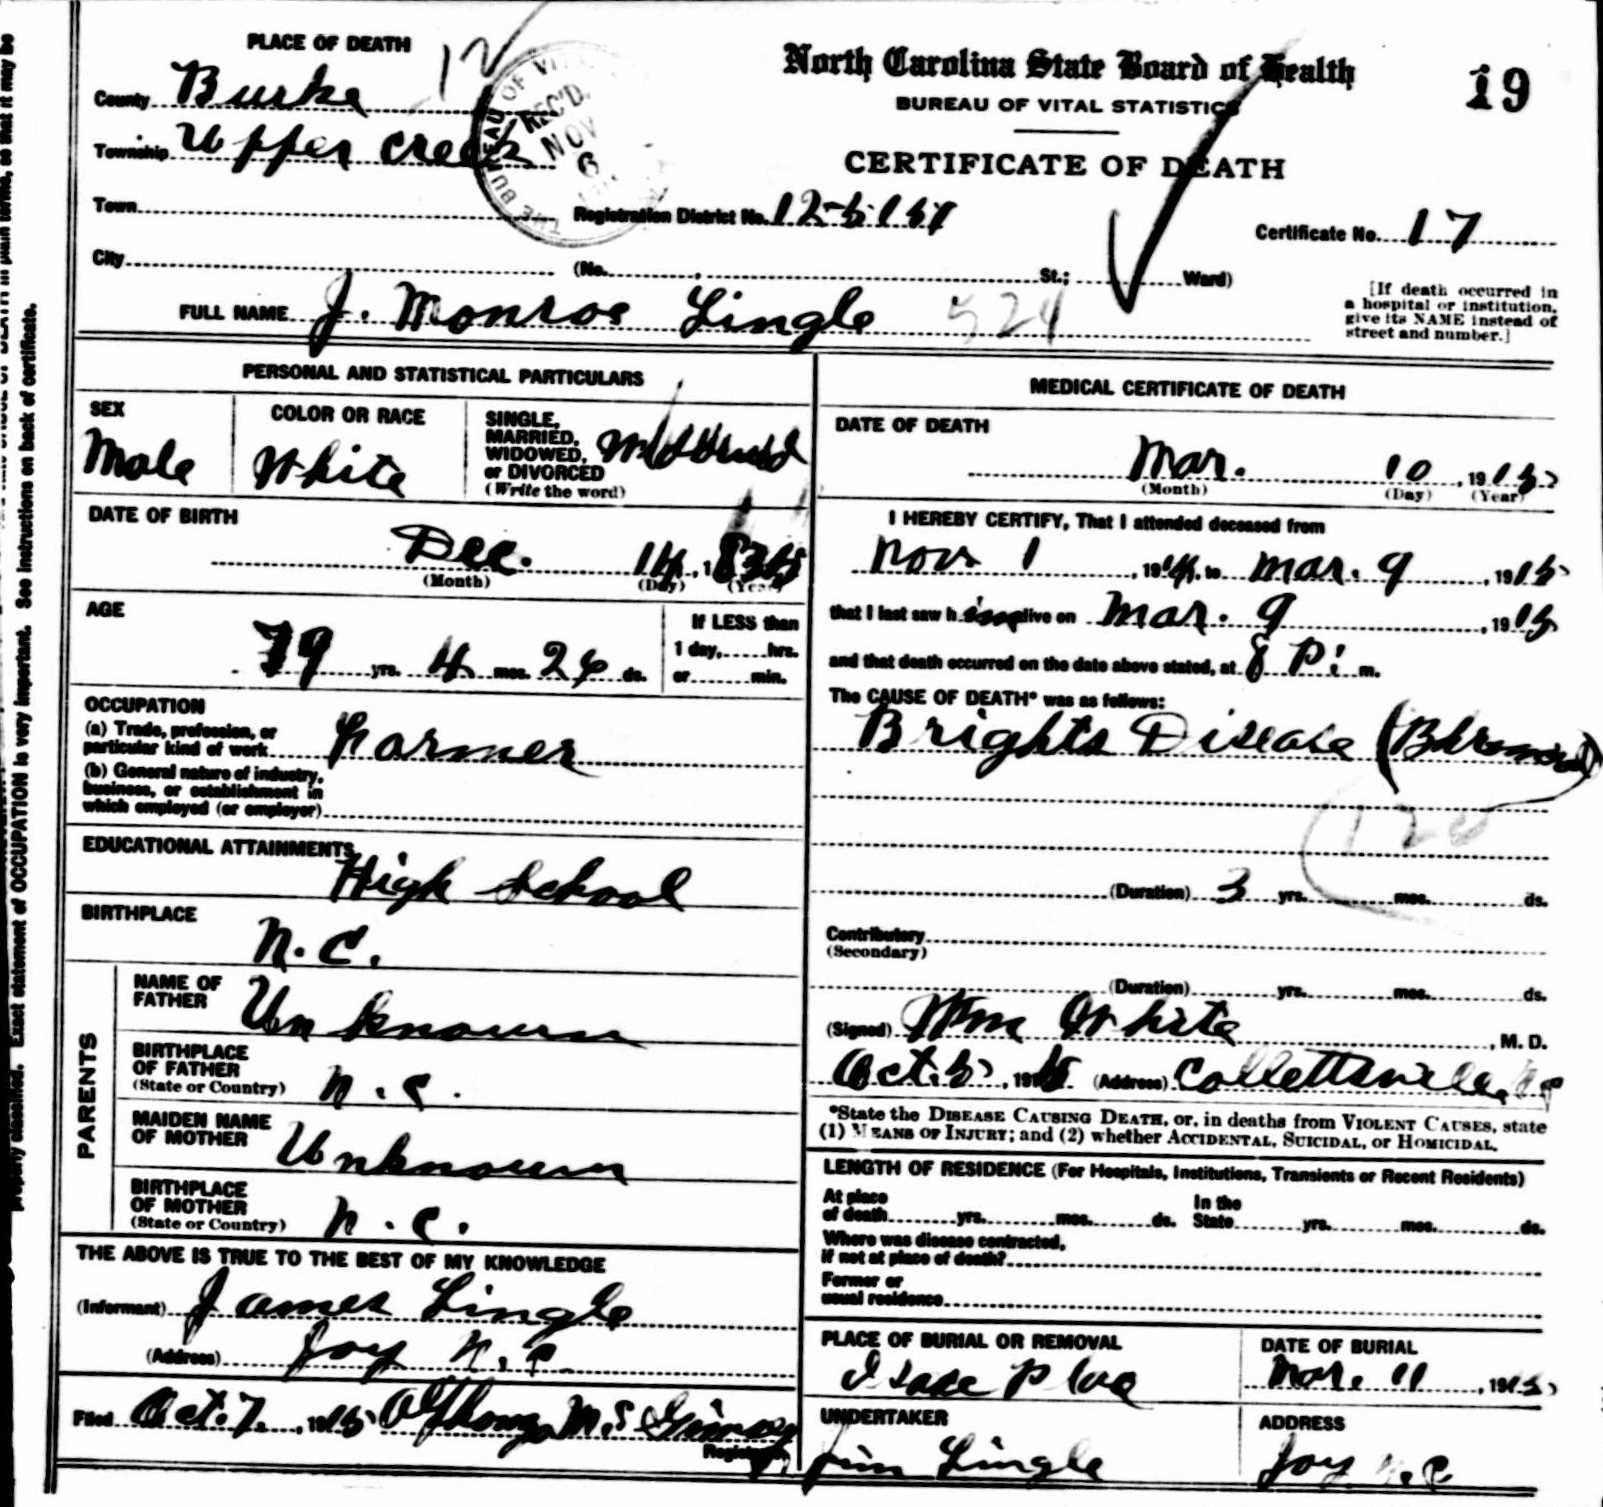 PLACE OF DEATH
County Burke
Township Upper Creek
Town
City
THE BUREAU OF VITAL
REC'D.
NOV
6
North Carolina State Board of Health
BUREAU OF VITAL STATISTICS
CERTIFICATE OF DEATH
19
Registration District No.
Certificate No. 17
(No. , St.; Ward)
[If death occurred in
a hospital or institution,
give its NAME instead of
street and number.]
FULL NAME J. Monroe Lingle 524
PERSONAL AND STATISTICAL PARTICULARS
SEX
Male
COLOR OR RACE
White
SINGLE,
MARRIED,
WIDOWED,
or DIVORCED
(Write the word)
DATE OF BIRTH
Dec. 14, 1
(Month) (Day) (Year)
AGE
79 yrs. 4 mos. 26 ds.
If LESS than
1 day, hrs.
or min.
OCCUPATION
(a) Trade, profession, or
particular kind of work Farmer
(b) General nature of industry,
business, or establishment in
which employed (or employer)
EDUCATIONAL ATTAINMENTS
High School
BIRTHPLACE
N.C.
PARENTS
NAME OF
FATHER Unknown
BIRTHPLACE
OF FATHER
(State or Country) N.C.
MAIDEN NAME
OF MOTHER Unknown
BIRTHPLACE
OF MOTHER
(State or Country) N.C.
THE ABOVE IS TRUE TO THE BEST OF MY KNOWLEDGE
(Informant) James Lingle
(Address) Joy N.C.
Filed Oct. 7, 1915
Registrar
MEDICAL CERTIFICATE OF DEATH
DATE OF DEATH
Mar. 10, 1915
(Month) (Day) (Year)
I HEREBY CERTIFY, That I attended deceased from
Nov 1, 1914, to Mar. 9, 1915
that I last saw him alive on Mar. 9, 1915
and that death occurred on the date above stated, at 8 P. m.
The CAUSE OF DEATH* was as follows:
Brights Disease
(Duration) 3 yrs. mos. ds.
Contributory
(Secondary)
(Duration) yrs. mos. ds.
(Signed) Wm White, M. D.
Oct. 5, 1915 (Address) Collettsville, N.C.
*State the DISEASE CAUSING DEATH, or, in deaths from VIOLENT CAUSES, state
(1) MEANS OF INJURY; and (2) whether ACCIDENTAL, SUICIDAL, or HOMICIDAL.
LENGTH OF RESIDENCE (For Hospitals, Institutions, Transients or Recent Residents)
At place
of death yrs. mos. ds.
In the
State yrs. mos. ds.
Where was disease contracted,
if not at place of death?
Former or
usual residence
PLACE OF BURIAL OR REMOVAL
DATE OF BURIAL
Mar. 11, 1915
UNDERTAKER
Jim Lingle
ADDRESS
Joy N.C.
properly classified. Exact statement of OCCUPATION is very important. See instructions on back of certificate.